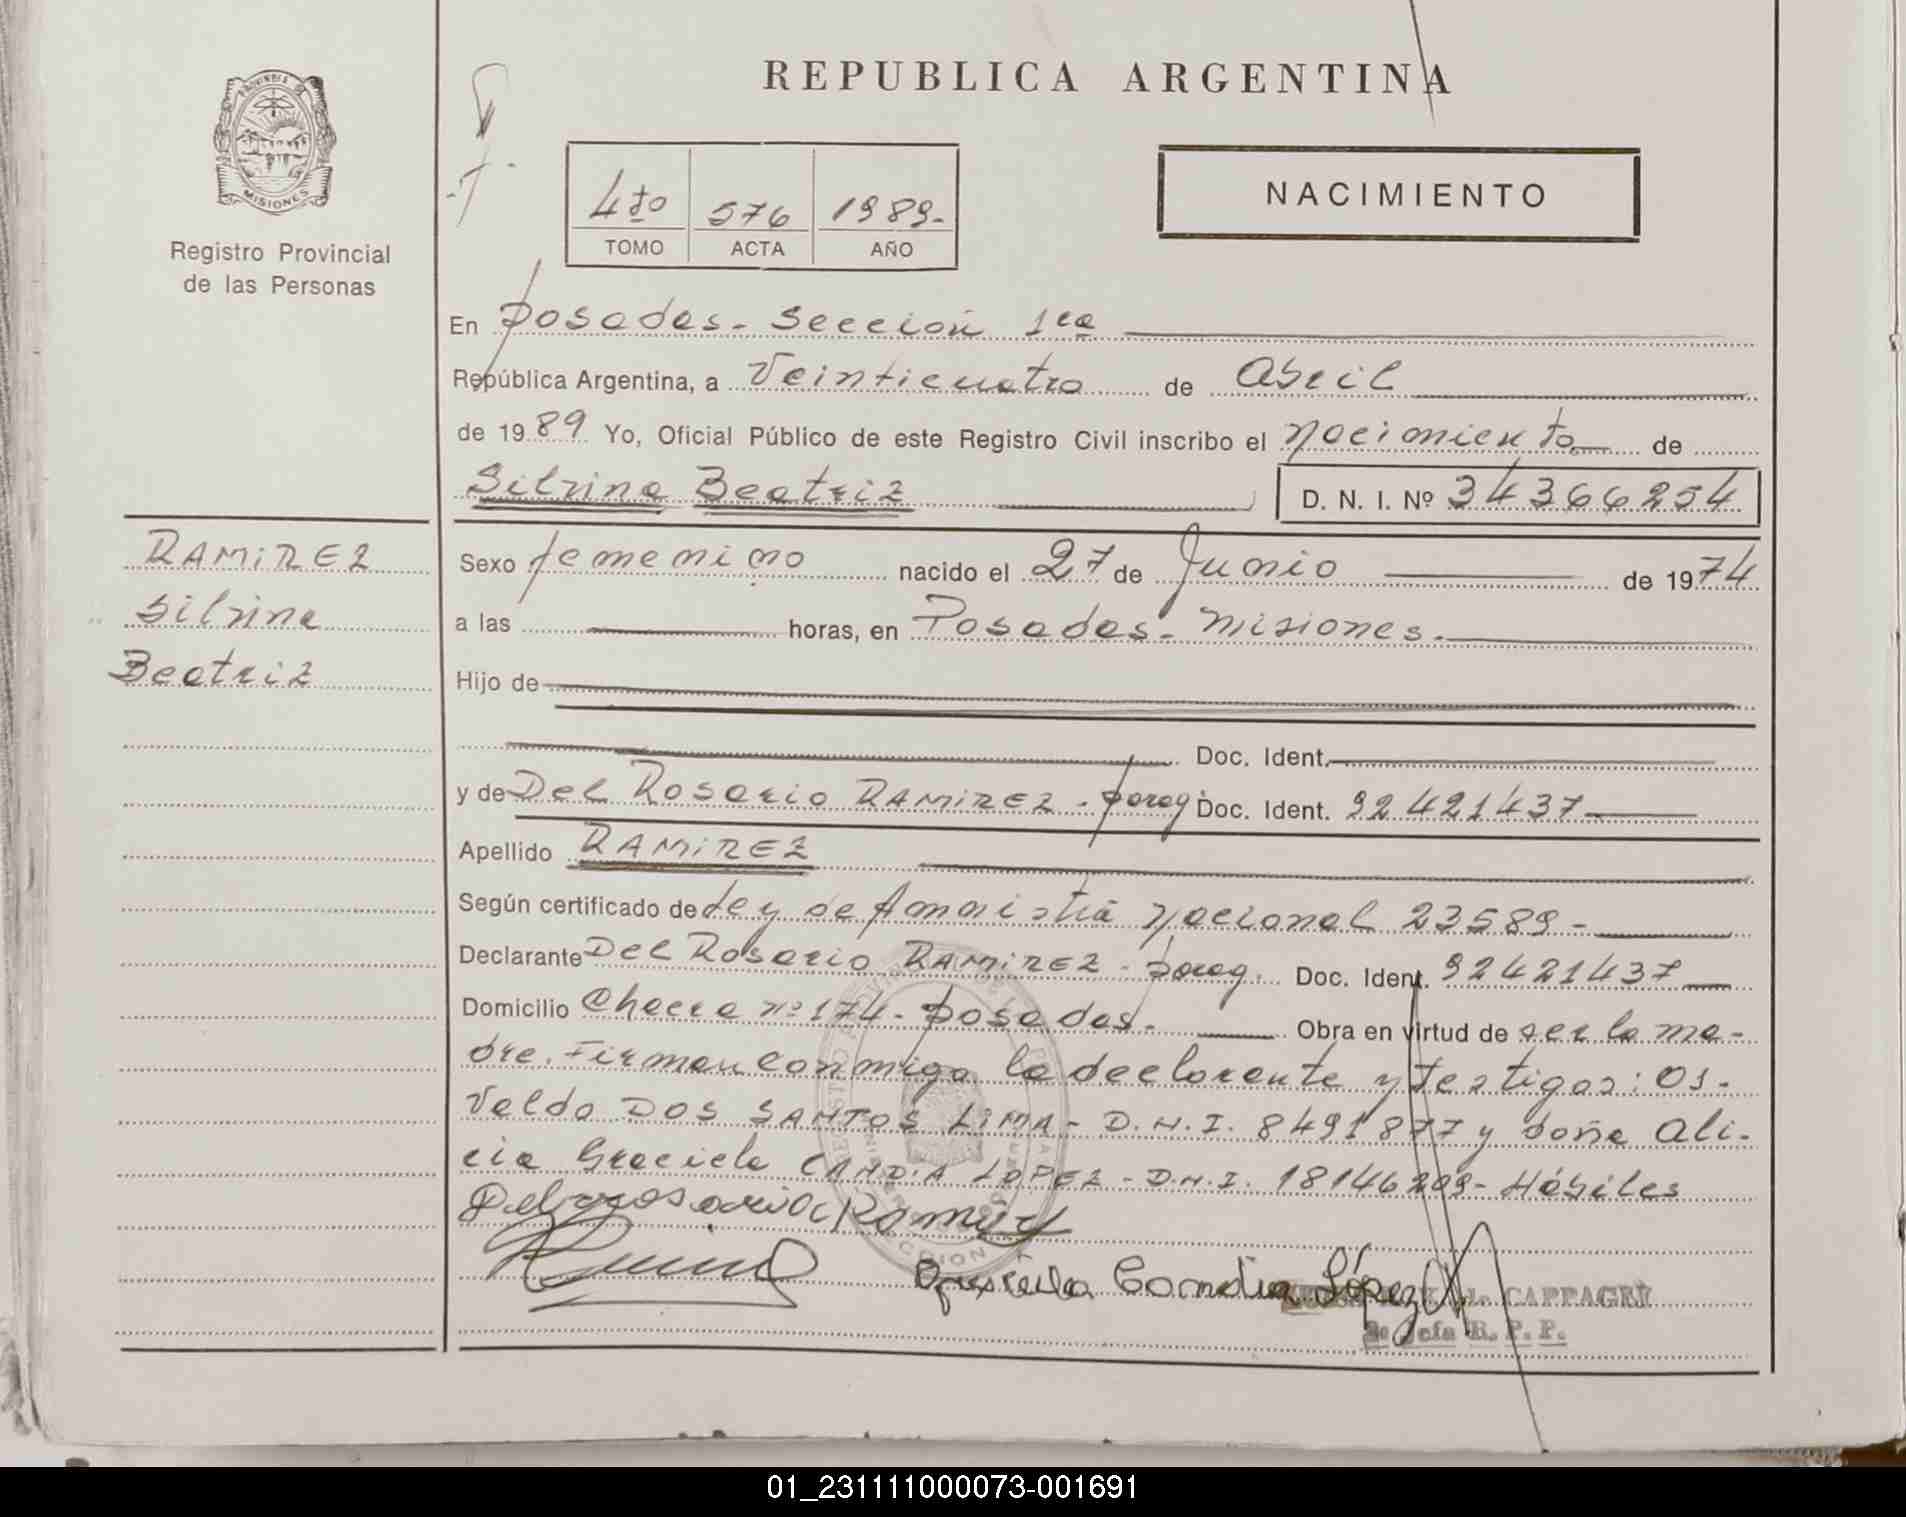 REPUBLICA ARGENTINA
PROVINCIA DE
MISIONES
Registro Provincial
de las Personas
4to 576 1989-
TOMO ACTA AÑO
NACIMIENTO
En Posadas- Sección 1ra
República Argentina, a Veinticuatro de Abril
de 1989 Yo, Oficial Público de este Registro Civil inscribo el nacimiento de
Silvina Beatriz D. N. I. Nº 34366254
RAMIREZ
Silvina
Beatriz
Sexo femenino nacido el 27 de Junio de 1974
a las horas, en Posadas- Misiones.
Hijo de
Doc. Ident.
y de Del Rosario RAMIREZ - parag. Doc. Ident. 92421437
Apellido RAMIREZ
Según certificado de Ley de Amnistía Nacional 23589-
Declarante Del Rosario RAMIREZ - parag. Doc. Ident. 92421437
Domicilio Chacra nº 174- Posadas. Obra en virtud de ser la ma-
dre. Firman conmigo la declarante y testigos: Os-
valdo DOS SANTOS LIMA- D.N.I. 8491877 y doña Ali-
cia Graciela CANDIA LOPEZ- D.N.I. 18146209- Hábiles
Del rosario Ramirez
Graciela Candia López
CAPPAGRI
2a Jefa R. P. P.
01_231111000073-001691